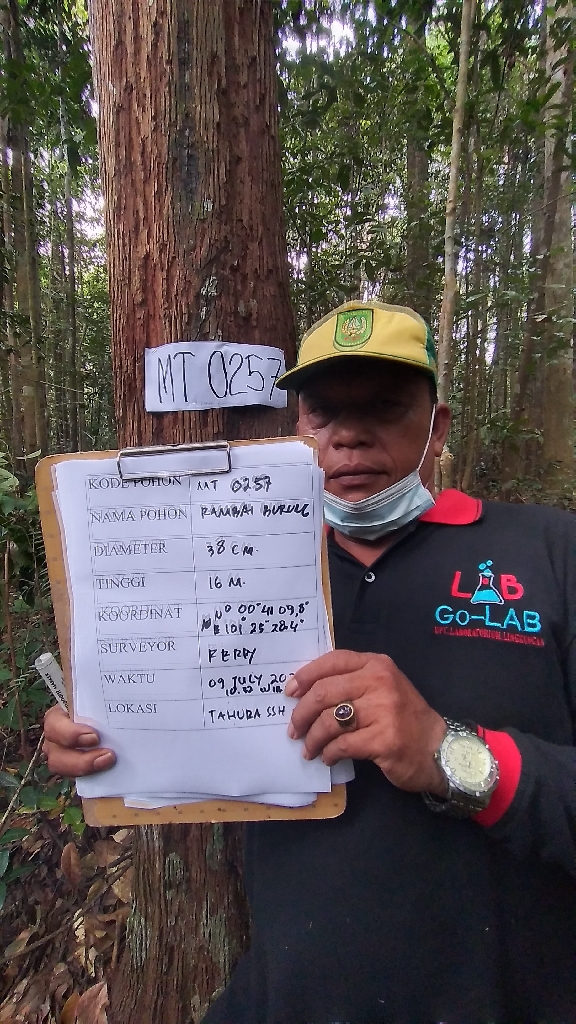 MT 0257
KODE POHON MT 0257
NAMA POHON RAMBAI BURUNG
DIAMETER 38 CM.
TINGGI 16 M.
KOORDINAT N 00°41'09,8"
E 101°25'28.4"
SURVEYOR FERRY
WAKTU 09 JULY
LOKASI TAHURA SSH
LAB
GO-LAB
UPT. LABORATORIUM LINGKUNGAN